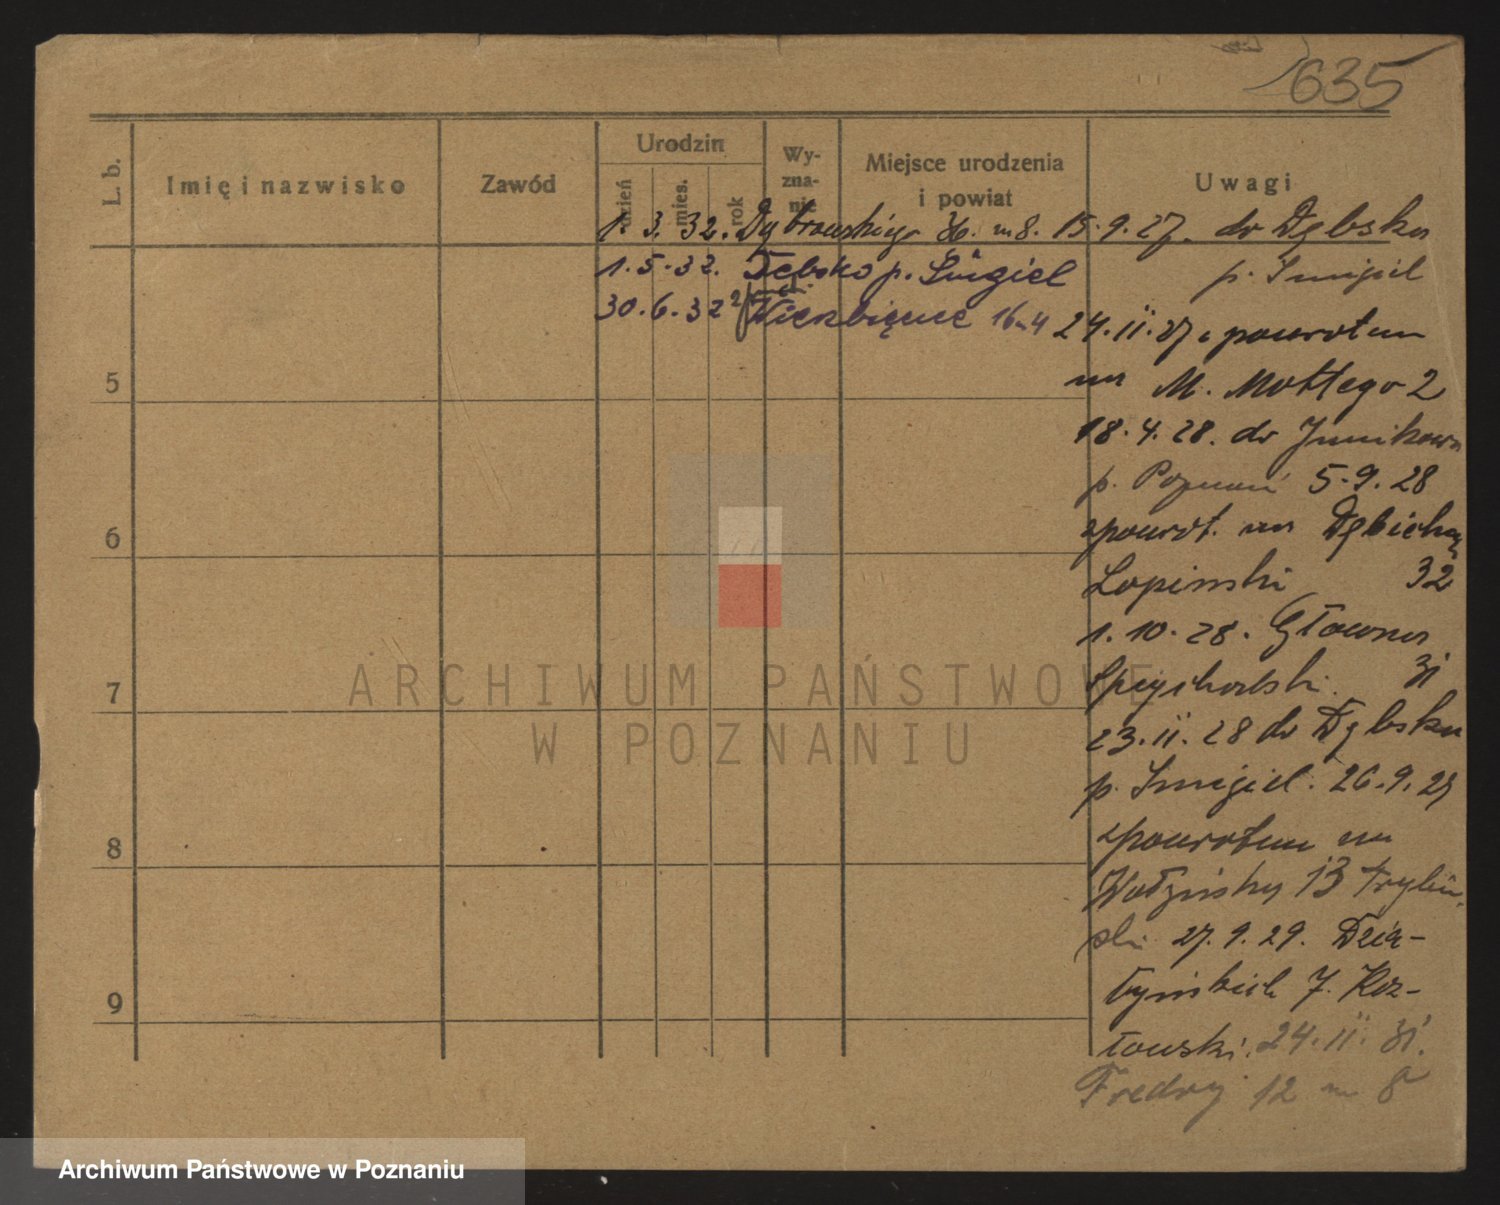 635
L. b.
Imię i nazwisko
Zawód
Urodzin
dzień
mies.
rok
Wy-
zna-
nie
Miejsce urodzenia
i powiat
Uwagi
1. 3. 32. Dąbrowskiego 36. m 8.
1. 5. 32. Dębsko p. Śmigiel
30. 6. 32 Wierzbięcice 16 m 4
15. 9. 27. do Dębska
p. Śmigiel
24. 11. 27 z powrotem
na M. Mottego 2
18. 4. 28. do Junikowa
p. Poznań 5. 9. 28
zpowrot. na
Łopinski 32
1. 10. 28. Główna
Spychalski. 31
23. 11. 28 do Dębska
p. Śmigiel. 26. 9. 29
zpowrotem na
13
ski 27. 9. 29. Dzia-
łyńskich 7. Koz-
łowski. 24. 11. 31.
Fredry 12 m 8
5
6
7
8
9
ARCHIWUM PAŃSTWOWE
W POZNANIU
Archiwum Państwowe w Poznaniu